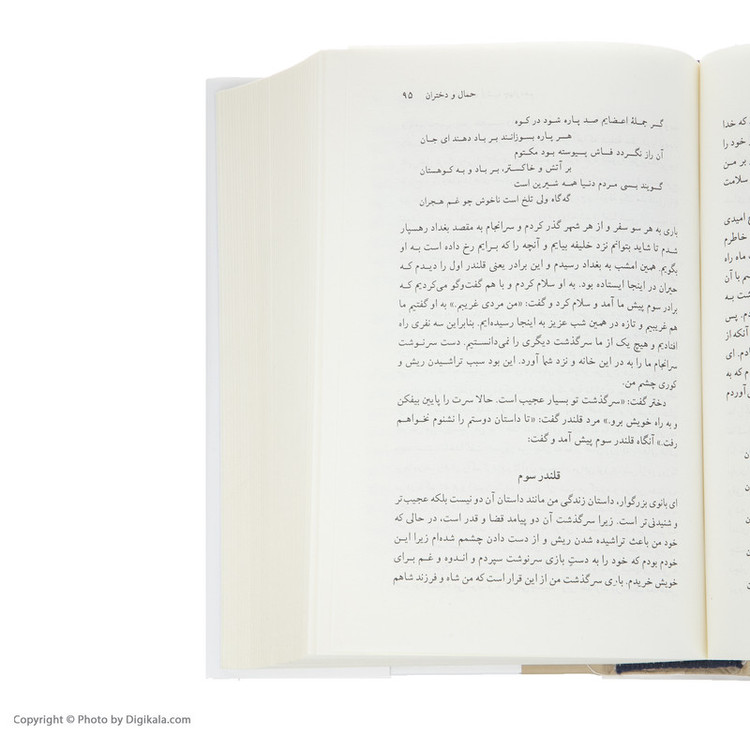 حمال و دختران ۹۵
گر جملهٔ اعضایم صد پاره شود در کوه
هر پاره بسوزانند بر باد دهند ای جان
آن راز نگردد فاش پیوسته بود مکتوم
بر آتش و خاکستر، بر باد و به کوهستان
گویند بسی مردم دنیا همه شیرین است
گه‌گاه ولی تلخ است ناخوش جو غم هجران
باری به هر سو سفر و از هر شهر گذر کردم و سرانجام به مقصد بغداد رهسپار
شدم تا شاید بتوانم نزد خلیفه بیایم و آنچه را که برایم رخ داده است به او
بگویم. همین امشب به بغداد رسیدم و این برادر یعنی قلندر اول را دیدم که
حیران در اینجا ایستاده بود. به او سلام کردم و با هم گفت‌وگو می‌کردیم که
برادر سوم پیش ما آمد و سلام کرد و گفت: «من مردی غریبم.» به او گفتیم ما
هم غریبیم و تازه در همین شب عزیز به اینجا رسیده‌ایم. بنابراین سه نفری راه
افتادیم و هیچ یک از ما سرگذشت دیگری را نمی‌دانستیم. دست سرنوشت
سرانجام ما را به در این خانه و نزد شما آورد. این بود سبب تراشیدن ریش و
کوری چشم من.
دختر گفت: «سرگذشت تو بسیار عجیب است. حالا سرت را پایین بیفکن
و به راه خویش برو.» مرد قلندر گفت: «تا داستان دوستم را نشنوم نخواهم
رفت.» آنگاه قلندر سوم پیش آمد و گفت:
قلندر سوم
ای بانوی بزرگوار، داستان زندگی من مانند داستان آن دو نیست بلکه عجیب‌تر
و شنیدنی‌تر است. زیرا سرگذشت آن دو پیامد قضا و قدر است، در حالی که
خود من باعث تراشیده شدن ریش و از دست دادن چشمم شده‌ام زیرا این
خودم بودم که خود را به دستِ بازی سرنوشت سپردم و اندوه و غم برای
خویش خریدم. باری سرگذشت من از این قرار است که من شاه و فرزند شاهم
که خدا
خود را
بر من
سلامت
امیدی
خاطرم
ماه راه
م با آن
شت به
دم. پس
آنکه از
دم. ای
م که به
آوردم
Copyright © Photo by Digikala.com